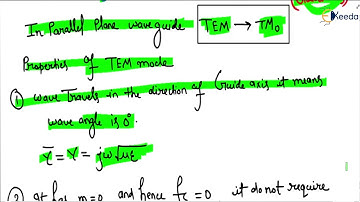 Keeda
In Parallel Plane waveguide
TEM → TM₀
Properties of TEM mode
① wave Travels in the direction of Guide axis it means
wave angle is 0°.
γ̅ = γ = jω√με
at for m=0 and hence fc = 0 it do not require